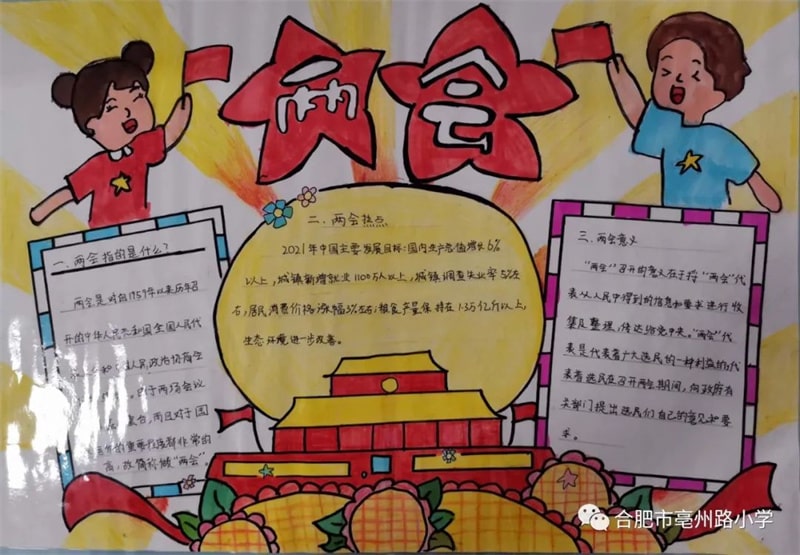 两会
一、两会指的是什么？
两会是对自1959年以来历年召
开的中华人民共和国全国人民代
人民政治协商会
两场会议
而且对于国
的重要程度都非常的
高，故简称做“两会”。
二、两会热点
2021年中国主要发展目标：国内生产总值增长6%
以上，城镇新增就业1100万人以上，城镇调查失业率5.5%左
右；居民消费价格涨幅3%左右；粮食产量保持在1.3万亿斤以上，
生态环境进一步改善。
三、两会意义
“两会”召开的意义在于将“两会”代
表从人民中得到的信息和要求进行收
集及整理，传达给党中央。“两会”代
表是代表着广大选民的一种利益的，代
表着选民在召开两会期间，向政府有
关部门提出选民们自己的意见和要
求。
合肥市亳州路小学